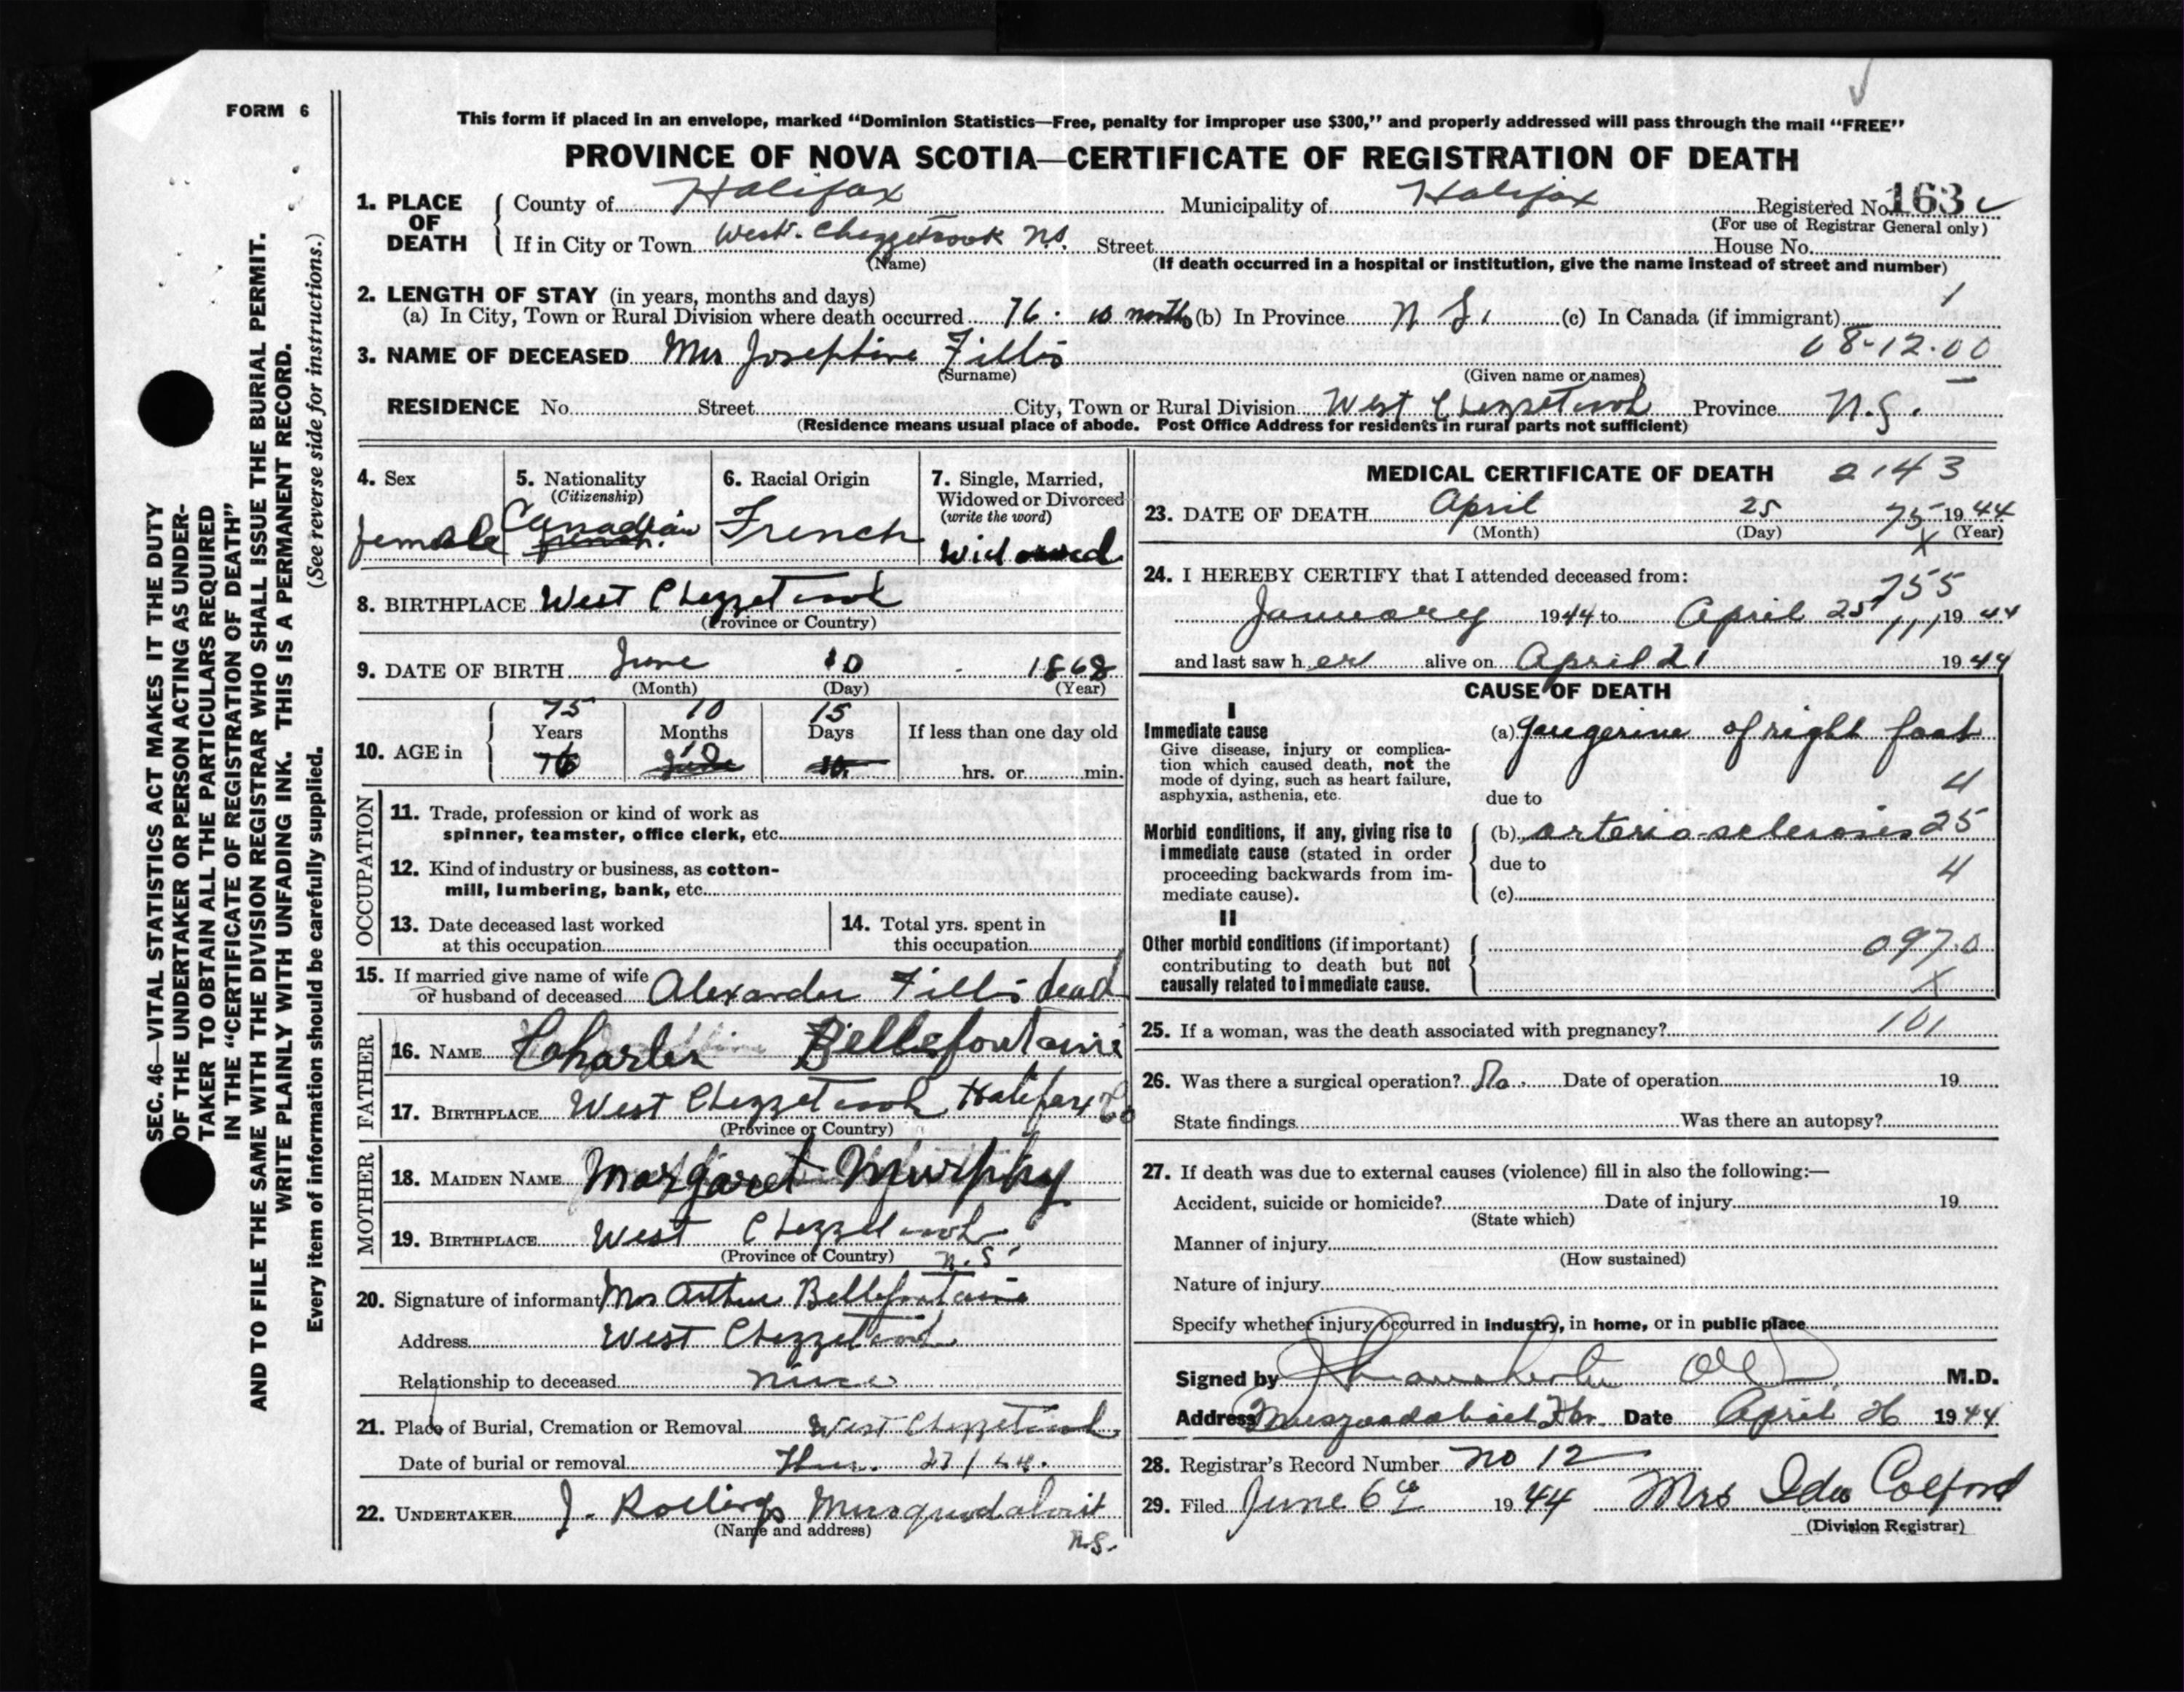 FORM 6
This form if placed in an envelope, marked "Dominion Statistics—Free, penalty for improper use $300," and properly addressed will pass through the mail "FREE"
PROVINCE OF NOVA SCOTIA—CERTIFICATE OF REGISTRATION OF DEATH
SEC. 46—VITAL STATISTICS ACT MAKES IT THE DUTY
OF THE UNDERTAKER OR PERSON ACTING AS UNDER-
TAKER TO OBTAIN ALL THE PARTICULARS REQUIRED
IN THE "CERTIFICATE OF REGISTRATION OF DEATH"
AND TO FILE THE SAME WITH THE DIVISION REGISTRAR WHO SHALL ISSUE THE BURIAL PERMIT.
WRITE PLAINLY WITH UNFADING INK. THIS IS A PERMANENT RECORD.
Every item of information should be carefully supplied. (See reverse side for instructions.)
1. PLACE OF DEATH
County of Halifax Municipality of Halifax Registered No. 163
(For use of Registrar General only)
If in City or Town West. Chezzetcook N.S. Street House No.
(Name) (If death occurred in a hospital or institution, give the name instead of street and number)
2. LENGTH OF STAY (in years, months and days) 1
(a) In City, Town or Rural Division where death occurred 76. 10 months (b) In Province N S. (c) In Canada (if immigrant)
3. NAME OF DECEASED Mrs Josephine Fillis 08-12.00
(Surname) (Given name or names)
RESIDENCE No. Street City, Town or Rural Division West Chezzetcook Province N.S.
(Residence means usual place of abode. Post Office Address for residents in rural parts not sufficient)
4. Sex 5. Nationality 6. Racial Origin 7. Single, Married,
(Citizenship) Widowed or Divorced
(write the word)
female Canadian French Widowed
french.
8. BIRTHPLACE West Chezzetcook
(Province or Country)
9. DATE OF BIRTH June 10 - 1868
(Month) (Day) (Year)
75 10 15
10. AGE in Years Months Days If less than one day old
76 hrs. or min.
OCCUPATION
11. Trade, profession or kind of work as
spinner, teamster, office clerk, etc.
12. Kind of industry or business, as cotton-
mill, lumbering, bank, etc.
13. Date deceased last worked 14. Total yrs. spent in
at this occupation this occupation
15. If married give name of wife
or husband of deceased Alexander Fillis dead
FATHER
16. NAME Charles Bellefontaine
17. BIRTHPLACE West Chezzetcook Halifax Co
(Province or Country)
MOTHER
18. MAIDEN NAME Margaret Murphy
19. BIRTHPLACE West Chezzetcook
(Province or Country) N.S.
20. Signature of informant Mrs Arthur Bellefontaine
Address West Chezzetcook
Relationship to deceased niece
21. Place of Burial, Cremation or Removal West Chezzetcook
Date of burial or removal Thur. 27/44.
22. UNDERTAKER J. Rollings Musquodoboit
(Name and address) N.S.
MEDICAL CERTIFICATE OF DEATH 2143
23. DATE OF DEATH April 25 75 1944
(Month) (Day) X (Year)
24. I HEREBY CERTIFY that I attended deceased from: 755
January 1944 to April 25 111 1944
and last saw her alive on April 21 1944
CAUSE OF DEATH
I
Immediate cause (a) gangerine of right foot
Give disease, injury or complica-
tion which caused death, not the
mode of dying, such as heart failure, 4
asphyxia, asthenia, etc. due to
Morbid conditions, if any, giving rise to (b) arterio-sclerosis 25
immediate cause (stated in order
proceeding backwards from im- due to 4
mediate cause). (c)
II
Other morbid conditions (if important) 097.0
contributing to death but not
causally related to immediate cause. X
25. If a woman, was the death associated with pregnancy? 101
26. Was there a surgical operation? No. Date of operation 19
State findings Was there an autopsy?
27. If death was due to external causes (violence) fill in also the following:—
Accident, suicide or homicide? Date of injury 19
(State which)
Manner of injury
(How sustained)
Nature of injury
Specify whether injury occurred in industry, in home, or in public place
Signed by M.D.
Address Musquodoboit Hbr. Date April 26 1944
28. Registrar's Record Number No 12
29. Filed June 6 1944 Mrs Ida Colford
(Division Registrar)